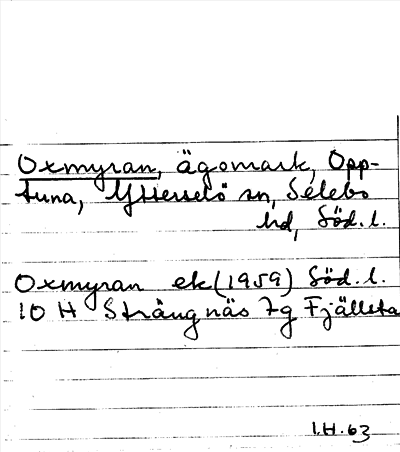 Oxmyran, ägomark, Opp-
tuna, Ytterselö sn, Selebo
hd, Söd. l.
Oxmyran ek (1959) Söd. l.
10 H Strängnäs 7g Fjälleta
I.H. 63